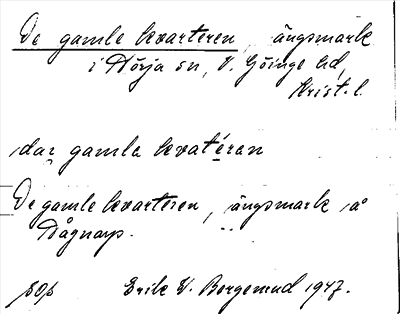 De gamle kvarteren, ängsmark
i Nörja sn, V. Göinge hd,
Krist. l.
dar gamla kvatéran
De gamle kvarteren, ängsmark å
Dågnarp.
sop Erik V. Borgemud 1947.